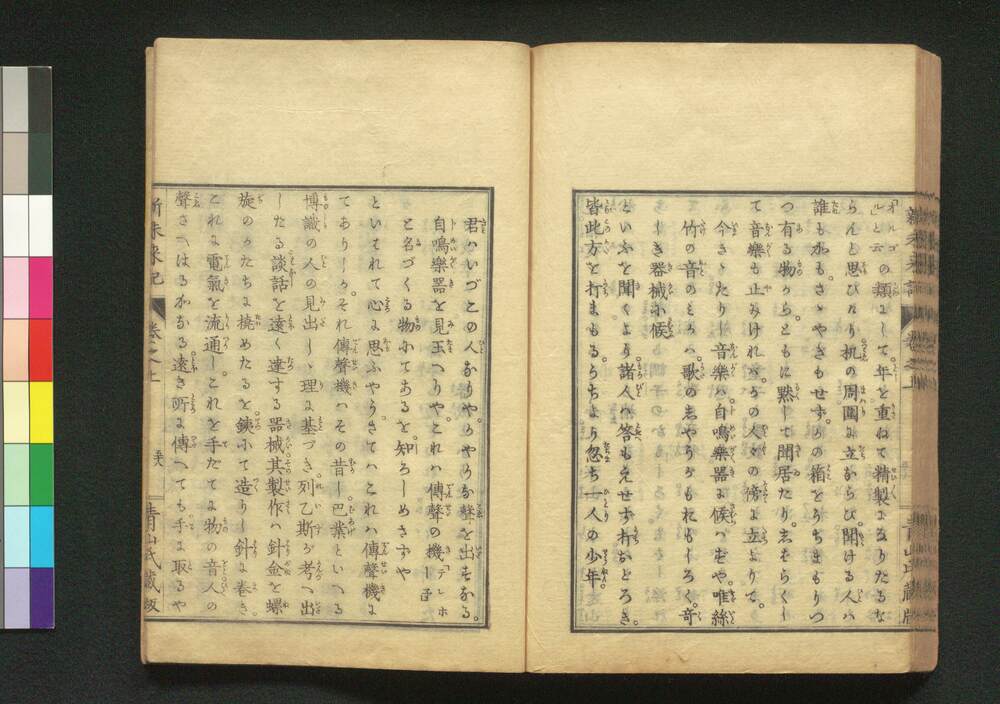 「オルゴル」と云の類にして。年を重ねて精製になりたるな
らんと思ひたり机の周圍に立ならび。聞ける人ハ
誰も水も。さゝやぎもせず。の箱をうちまもりつ
つ有る物から。ともに黙して聞居たり。志を らくし
て音樂も止みけれバ。の人々の傍に立よりて。
今きゝたりし音樂ハ。自鳴樂器に候ハむや。唯絲
竹の音のミ ハ。歌の志やうがもれもしろく。奇
しき器械に候
といふを聞くより。諸人ハ答もえせす打おどろき。
皆此方を打まもる。うちより忽ち一人の少年。
君ハいづこの人なりや。 かの聲を出すなる。
自鳴樂器を見玉へりや。これハ傳聲の機「テレホ
ト名づくる物にてあるを。知ろしめさずや
といはれて心に思ふやう。さてハこれハ傳聲機に
てありしか。それ傳聲機ハその昔し。巴業といへる
博識の人の見出しゝ理に基づき。列乙斯が考へ出
したる談話を遠く達する器械。其製作ハ針金を螺
旋のかたちに撓めたるを。鐵にて造りし針に巻き。
これに電氣を流通し。これを手だてに物の音人の
聲さへはるかなる遠き所に傳へても手に取るや
新未来記 巻之上 青山氏藏版